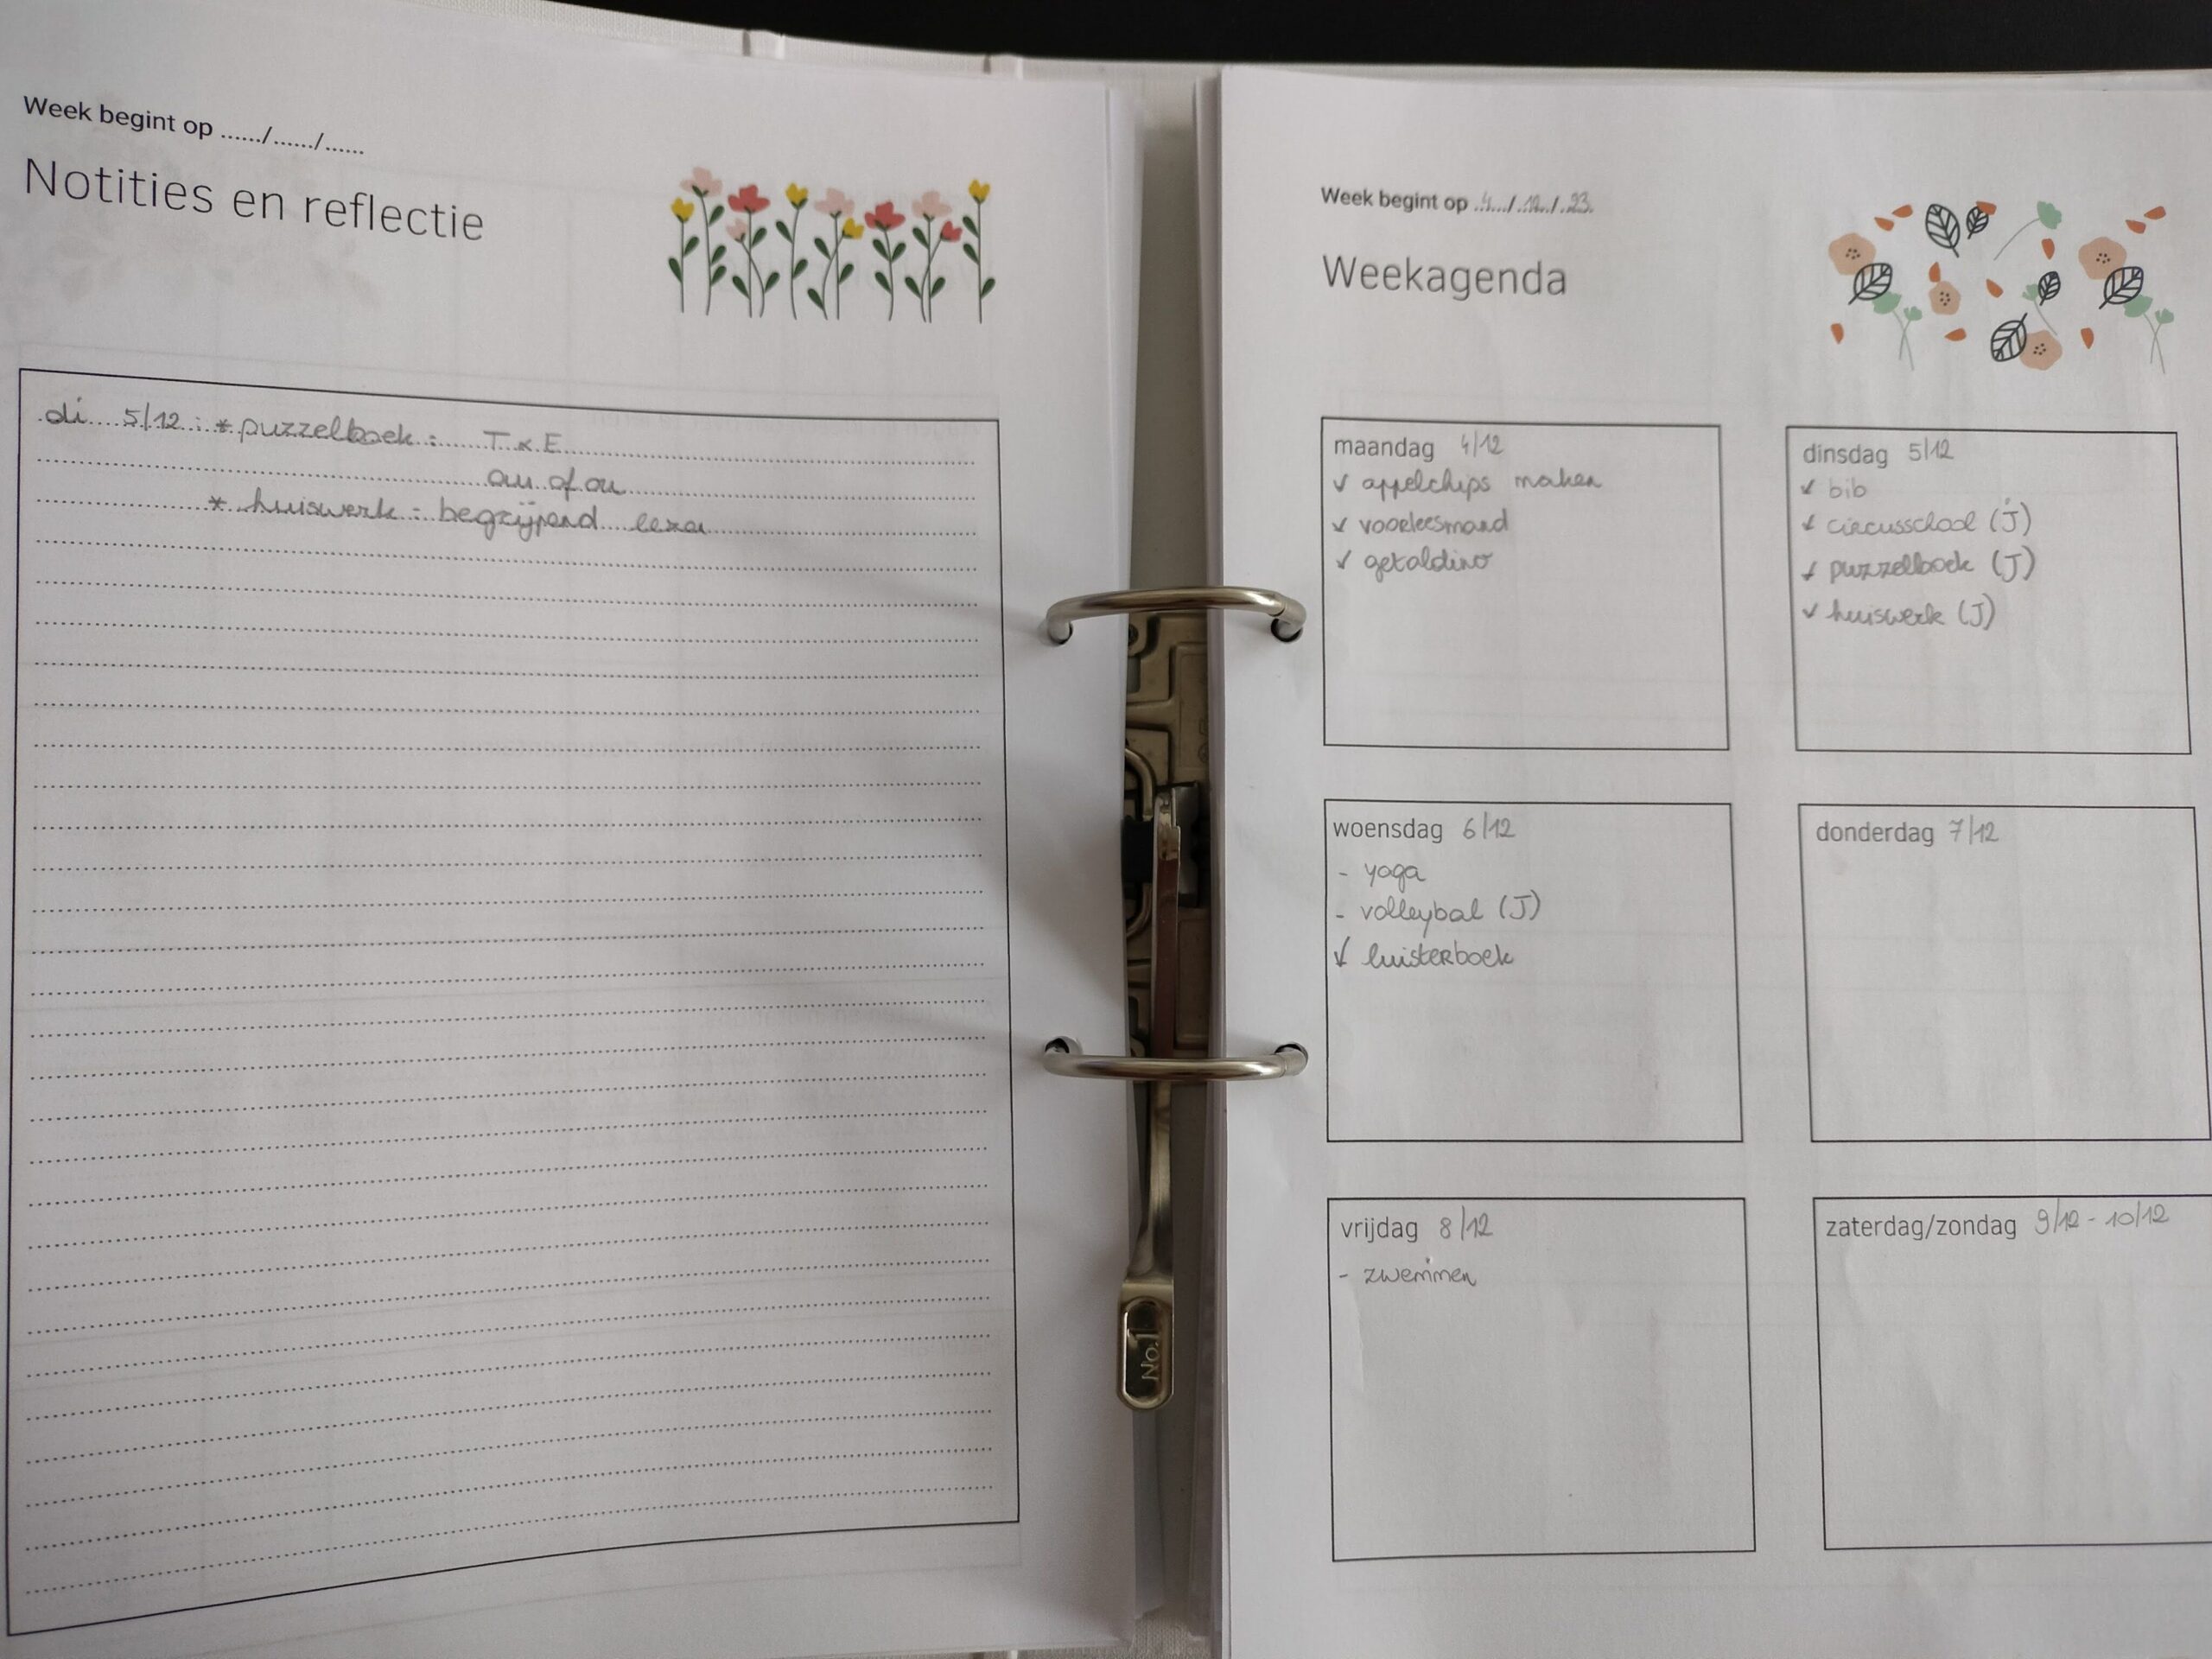 Week begint op ....../....../......
Notities en reflectie
di 5/12 : * puzzelboek : T x E
au of ou
* huiswerk : begrijpend lezen
No.1
Week begint op 4 / 12 / 23
Weekagenda
maandag 4/12
✓ appelchips maken
✓ voorleesmand
✓ getaldino
dinsdag 5/12
✓ bib
✓ circusschool (J)
✓ puzzelboek (J)
✓ huiswerk (J)
woensdag 6/12
- yoga
- volleybal (J)
✓ luisterboek
donderdag 7/12
vrijdag 8/12
- zwemmen
zaterdag/zondag 9/12 - 10/12